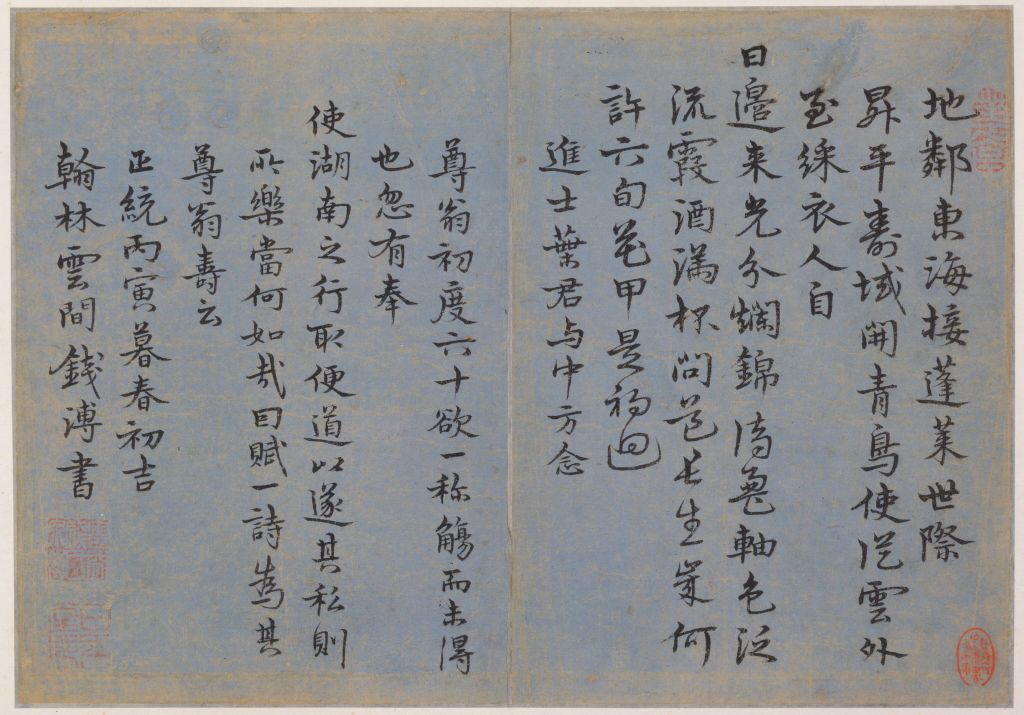 地鄰東海接蓬萊世際
昇平壽域開青鳥使從雲外
至綵衣人自
日邊来光分爛錦軸色泛
流霞酒滿杯問道長生何
許六旬花甲是初迴
進士葉君与中方念
尊翁初度六十欲一称觴而未得
也忽有奉
使湖南之行取便道以遂其私則
所樂當何如哉因賦一詩為其
尊翁壽云
正統丙寅暮春初吉
翰林雲間錢溥書